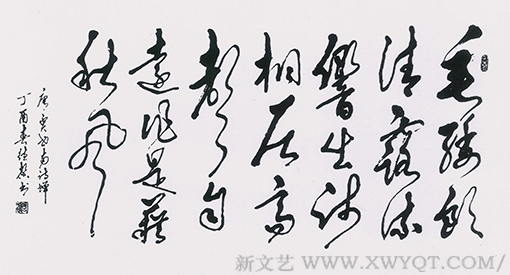 垂緌飲
清露流
響出疏
桐居高
聲自
遠非是藉
秋風
唐虞世南詩蟬
丁酉春书
新文艺 WWW.XWYQT.COM/